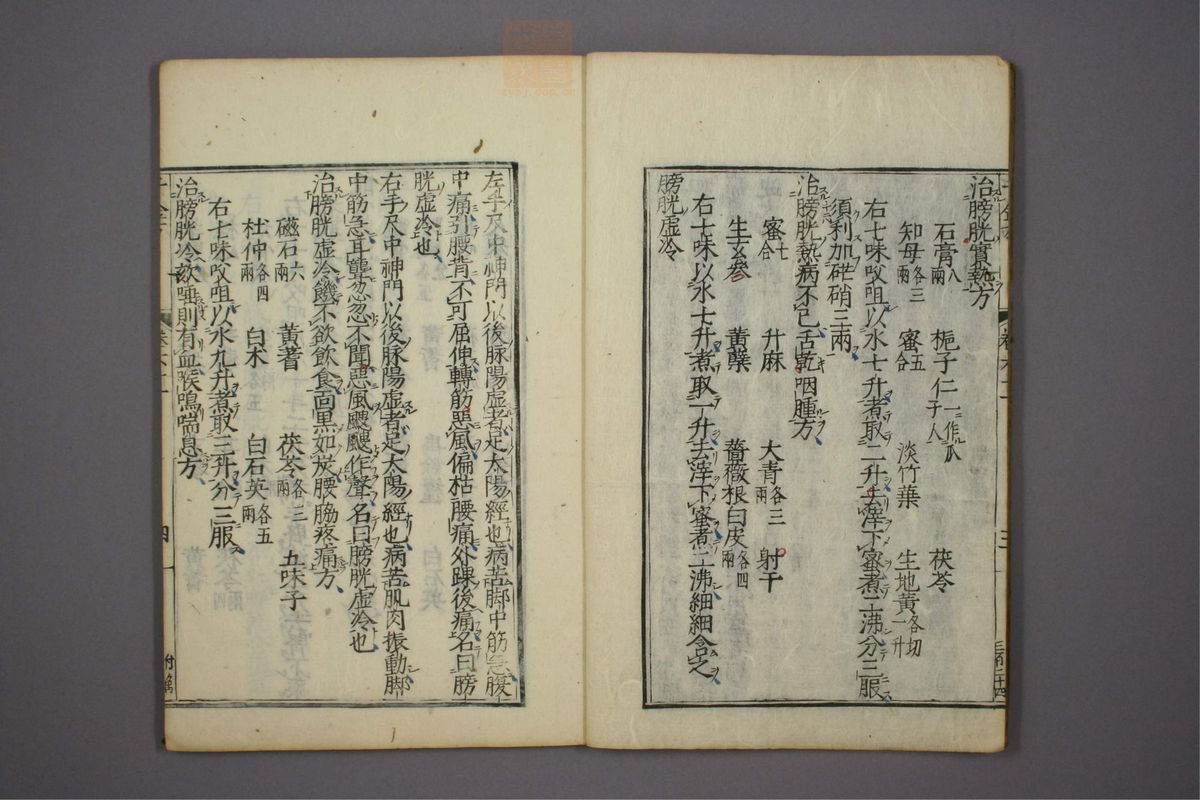 治膀胱實熱方
石膏八兩 梔子仁一作瓜子人 茯苓
知母各三兩 蜜五合 淡竹葉 生地黃各切一升
右七味㕮咀以水七升煮取二升去滓下蜜煮二沸分三服
須利加硭硝三兩
治膀胱熱病不已舌乾咽腫方
蜜七合 升麻 大青各三兩 射干
生玄參 黃蘗 薔薇根白皮各四兩
右七味以水七升煮取一升去滓下蜜煮二沸細細含之
膀胱虛冷
左手尺中神門以後脉陽虛者足太陽經也病苦脚中筋急腹
中痛引腰背不可屈伸轉筋惡風偏枯腰痛外踝後痛名曰膀
胱虛冷也
右手尺中神門以後脉陽虛者足太陽經也病苦肌肉振動脚
中筋急耳聾忽忽不聞惡風颼颼作聲名曰膀胱虛冷也
治膀胱虛冷饑不欲飲食面黑如炭腰脇疼痛方
磁石六兩 黃蓍 茯苓各三兩 五味子
杜仲各四兩 白朮 白石英各五兩
右七味㕮咀以水九升煮取三升分三服
治膀胱冷欬唾則有血喉鳴喘息方
四